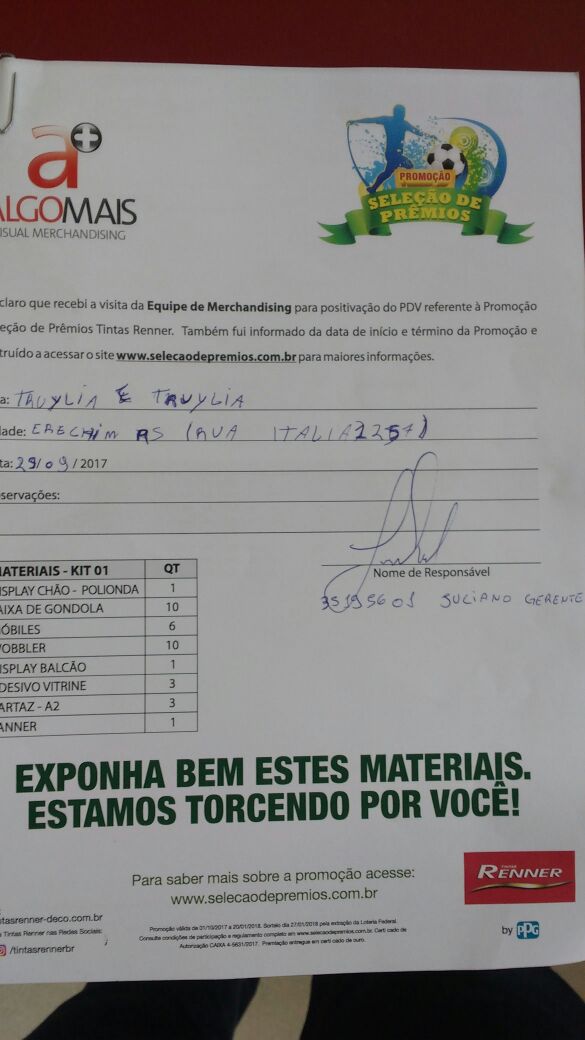 a+
ALGOMAIS
ISUAL MERCHANDISING
PROMOÇÃO
SELEÇÃO DE
PRÊMIOS
claro que recebi a visita da Equipe de Merchandising para positivação do PDV referente à Promoção
eção de Prêmios Tintas Renner. Também fui informado da data de início e término da Promoção e
truído a acessar o site www.selecaodepremios.com.br para maiores informações.
a: TAUYLIA E TAUYLIA
dade: ERECHIM RS (RUA ITALIA
ta: 29/09/2017
servações:
Nome de Responsável
GERENTE
MATERIAIS - KIT 01 QT
ISPLAY CHÃO - POLIONDA 1
AIXA DE GONDOLA 10
ÓBILES 6
OBBLER 10
ISPLAY BALCÃO 1
DESIVO VITRINE 3
ARTAZ - A2 3
ANNER 1
EXPONHA BEM ESTES MATERIAIS.
ESTAMOS TORCENDO POR VOCÊ!
Para saber mais sobre a promoção acesse:
www.selecaodepremios.com.br
TINTAS
RENNER
by PPG
tasrenner-deco.com.br
e Tintas Renner nas Redes Sociais:
/tintasrennerbr
Promoção válida de 01/10/2017 a 20/01/2018. Sorteio dia 27/01/2018 pela extração da Loteria Federal.
Consulte condições de participação e regulamento completo em www.selecaodepremios.com.br. Certi cado de
Autorização CAIXA 4-5631/2017. Premiação entregue em certi cado de ouro.